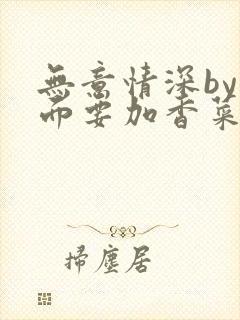 無意情深by
而要加香菜
掃塵居